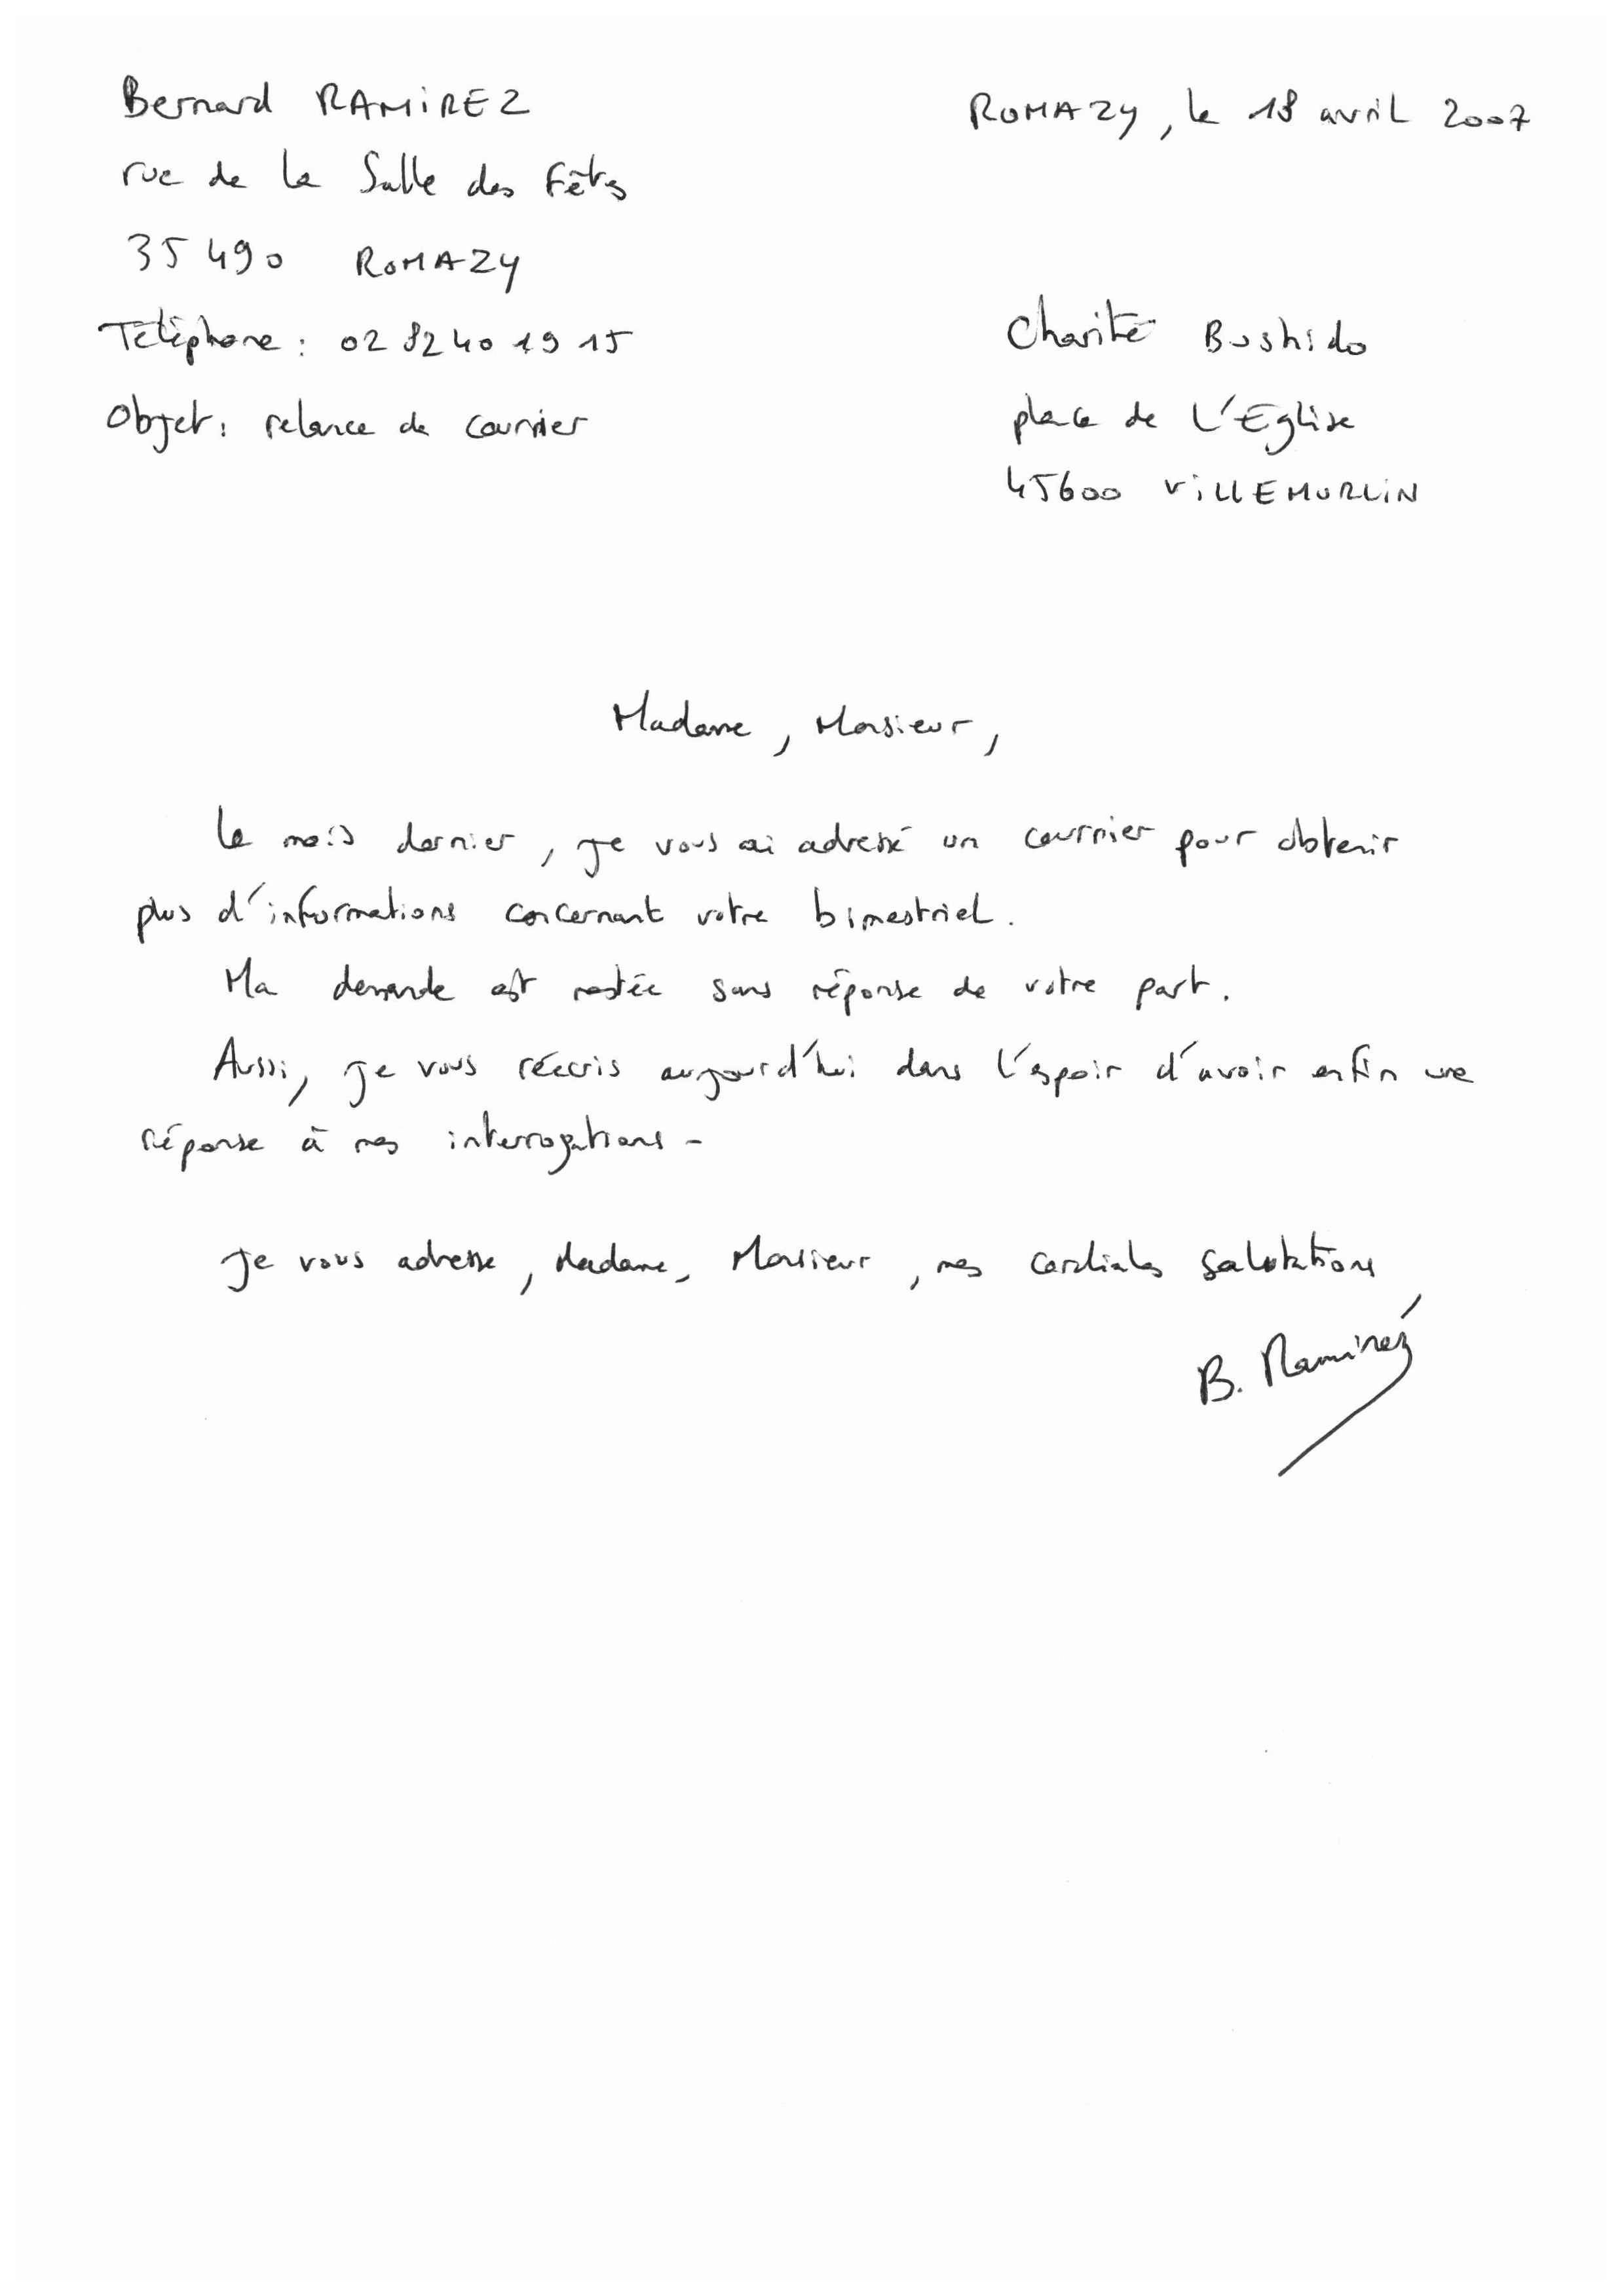 Bernard RAMIREZ
rue de la Salle des Fêtes
35490 ROMAZY
Téléphone : 02 82 40 19 15
Objet : relance de courrier
ROMAZY, le 18 avril 2007
Charité Bushido
place de L'Eglise
45600 VILLEMURLIN
Madame, Monsieur,
Le mois dernier, je vous ai adressé un courrier pour obtenir
plus d'informations concernant votre bimestriel.
Ma demande est restée sans réponse de votre part.
Aussi, je vous réécris aujourd'hui dans l'espoir d'avoir enfin une
réponse à mes interrogations -
Je vous adresse, Madame, Monsieur, mes cordiales salutations
B. Ramirez